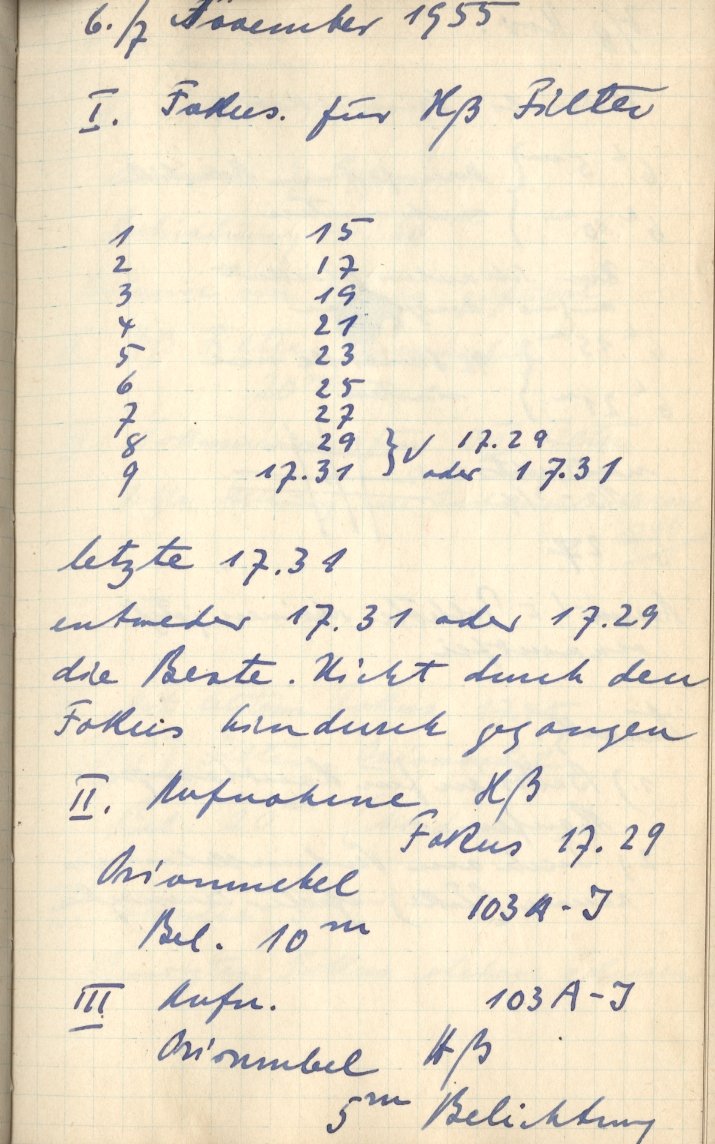 6./7 November 1955
I. Fokus. für Hβ Filter
1 15
2 17
3 19
4 21
5 23
6 25
7 27
8 29 } √ 17.29
9 17.31 } oder 17.31
letzte 17.31
entweder 17.31 oder 17.29
die Beste. Nicht durch den
Fokus hindurch gegangen
II. Aufnahme Hβ
Fokus 17.29
Orionnebel
103A-J
Bel. 10ᵐ
III Aufn. 103A-J
Orionnebel Hβ
5ᵐ Belichtung